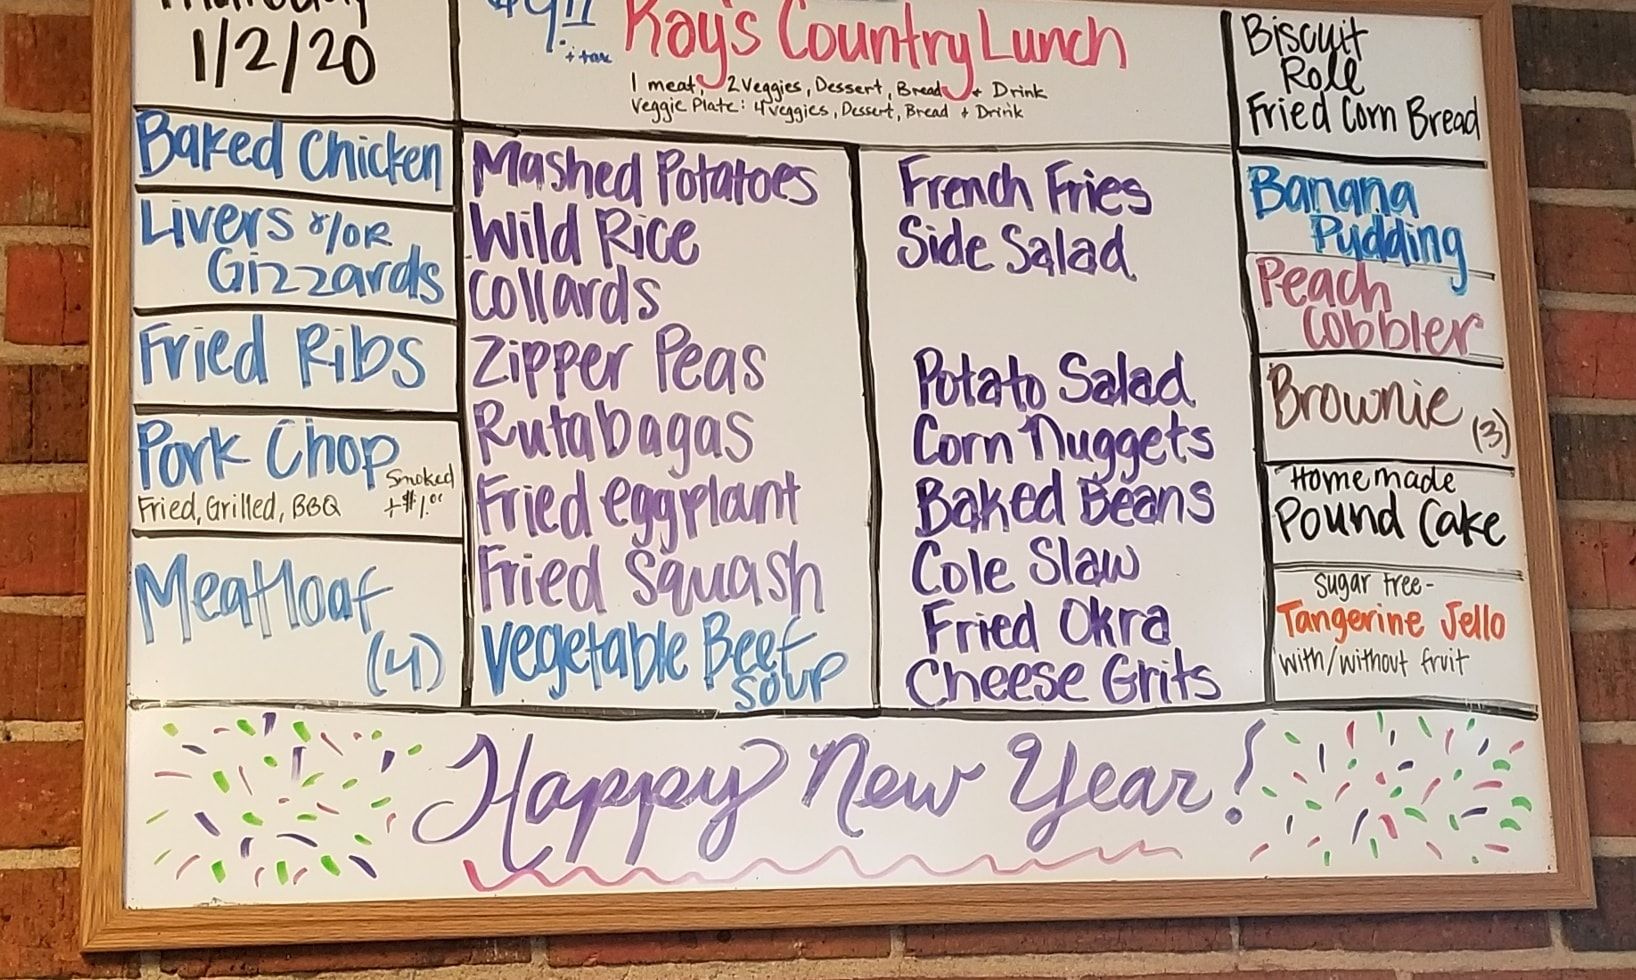 Thursday
1/2/20
+ tax
Kay's Country Lunch
1 meat, 2 Veggies, Dessert, Bread + Drink
Veggie Plate: 4 veggies, Dessert, Bread + Drink
Biscuit
Roll
Fried Corn Bread
Baked Chicken
Livers &/OR
Gizzards
Fried Ribs
Pork Chop
Smoked
Fried, Grilled, BBQ +$1.00
Meatloaf
(4)
Mashed Potatoes
Wild Rice
Collards
Zipper Peas
Rutabagas
Fried eggplant
Fried Squash
Vegetable Beef
Soup
French Fries
Side Salad
Potato Salad
Corn Nuggets
Baked Beans
Cole Slaw
Fried Okra
Cheese Grits
Banana
Pudding
Peach
Cobbler
Brownie (3)
Homemade
Pound Cake
Sugar free-
Tangerine Jello
with/without fruit
Happy New Year!